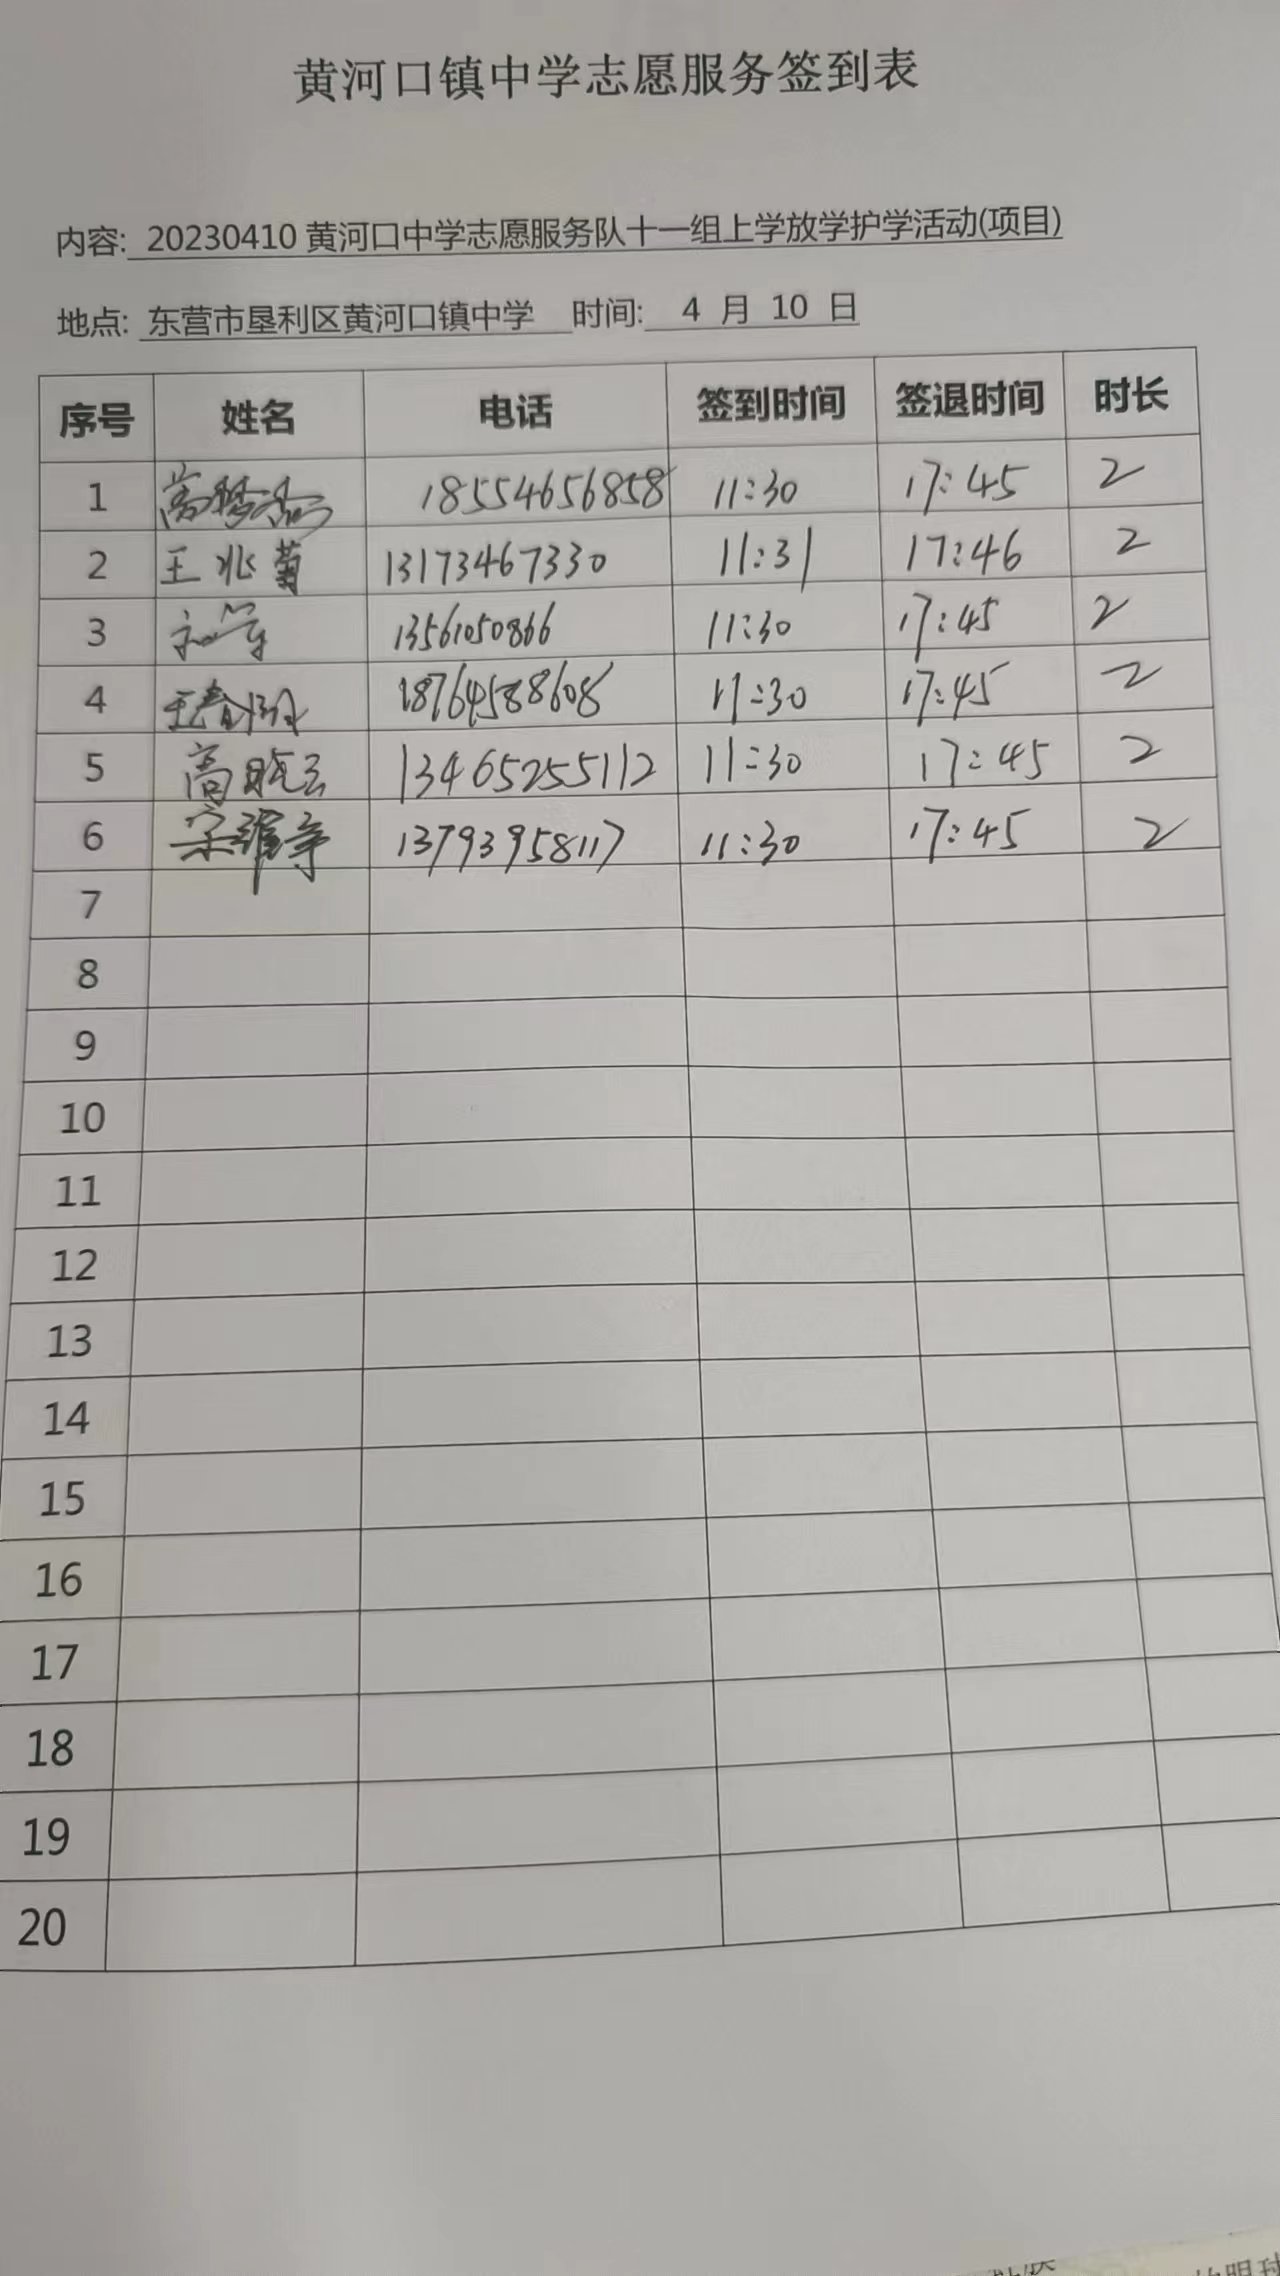 黄河口镇中学志愿服务签到表
内容: 20230410 黄河口中学志愿服务队十一组上学放学护学活动(项目)
地点: 东营市垦利区黄河口镇中学 时间: 4 月 10 日
序号 姓名 电话 签到时间 签退时间 时长
1 18554656858 11:30 17:45 2
2 王兆菊 13173467330 11:31 17:46 2
3 13561050866 11:30 17:45 2
4 王春 18764588608 11:30 17:45 2
5 高晓云 13465255112 11:30 17:45 2
6 宋维亭 13793958117 11:30 17:45 2
7
8
9
10
11
12
13
14
15
16
17
18
19
20
的眼球